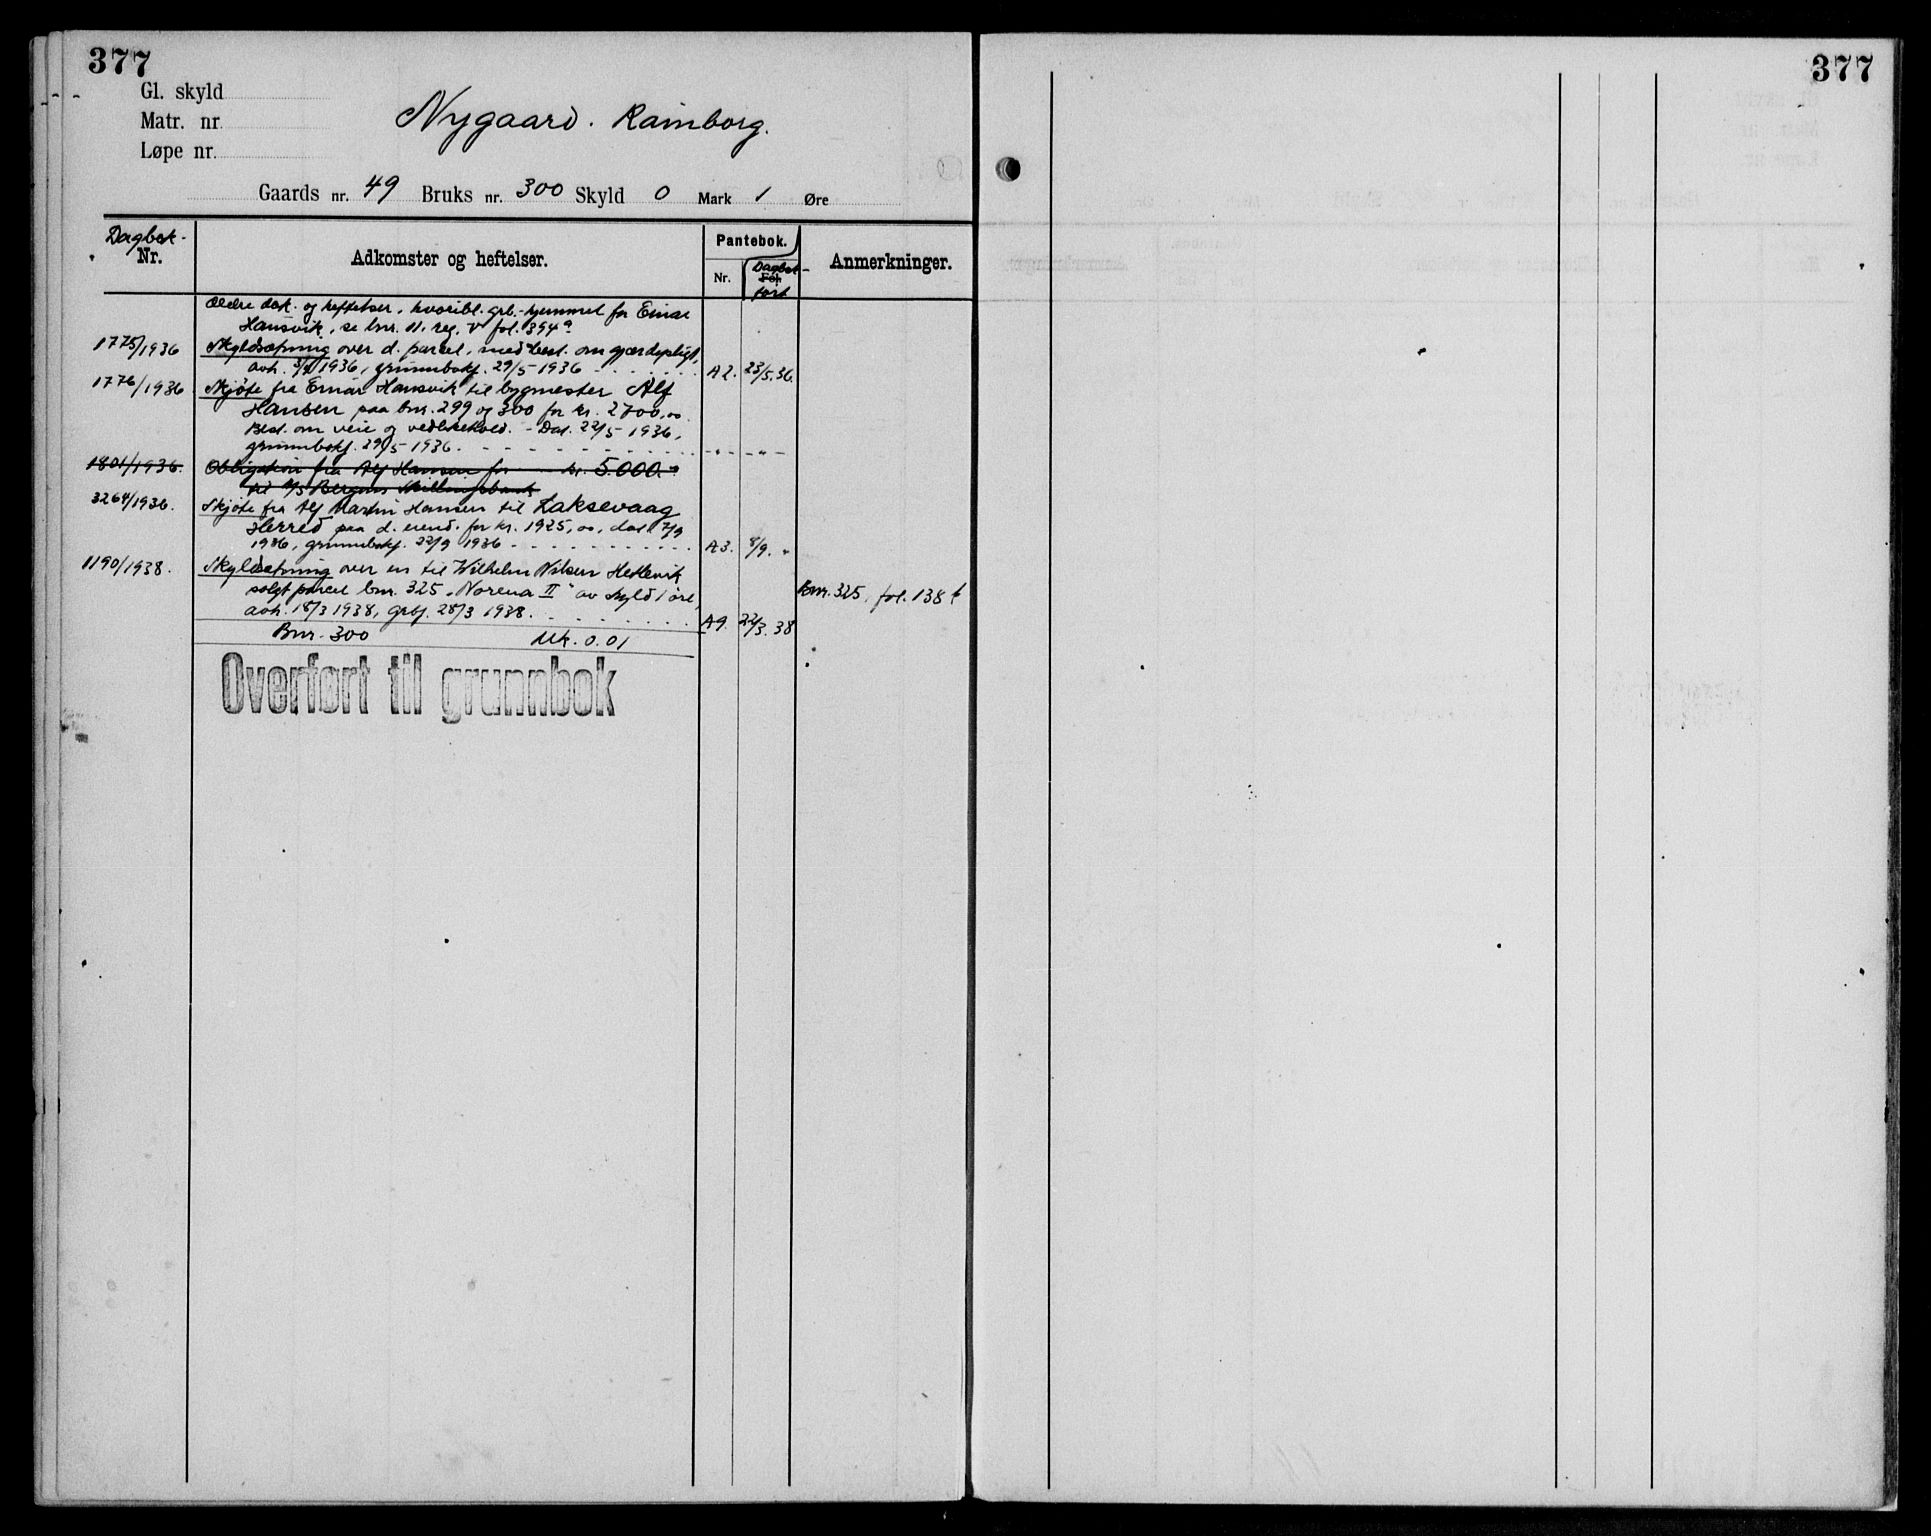 377
Gl. skyld
Matr. nr.
Løpe nr.
Nygaard. Rainborg.
Gaards nr. 49 Bruks nr. 300 Skyld 0 Mark 1 Øre
Dagbok- Nr.
Adkomster og heftelser.
Pantebok.
Nr.
Dagbok- Fol. ført
Anmerkninger.
Ældre dok. og heftelser, hvoribl. grb.-hjemmel for Einar
Hansvik, se bnr. 11, reg. V fol. 394a
1775/1936 Skyldsætning over d. parcel, med best. om gjerdepligt,
avh. 1936, grunnbokf. 29/5-1936 A2. 23/5.36.
1776/1936 Skjöte fra Einar Hansvik til bygmester Alf
Hansen paa bnr. 299 og 300 for kr. 2700,00
Best. om veie og vedlikehold. - Dat. 22/5-1936,
grunnbokf. 29/5-1936. - " - " -
1801/1936. Obligation fra Alf Hansen for kr. 5.000.-
til A/S Bergens Skillingsbank
3264/1936. Skjöte fra Alf Martin Hansen til Laksevaag
Herred paa d. eiend. for kr. 1925,00, dat. 7/9
1936, grunnbokf. 22/9 1936 A3. 8/9. "
1190/1938. Skyldsætning over en til Wilhelm Nilsen Hetlevik
solgt parcel bnr. 325 „Norena II" av skyld 1 öre,
avh. 18/3 1938, grbf. 28/3 1938. A9. 22/3.38
Bnr. 325, fol. 138
Bnr. 300 Mk. 0.01
Overført til grunnbok
377